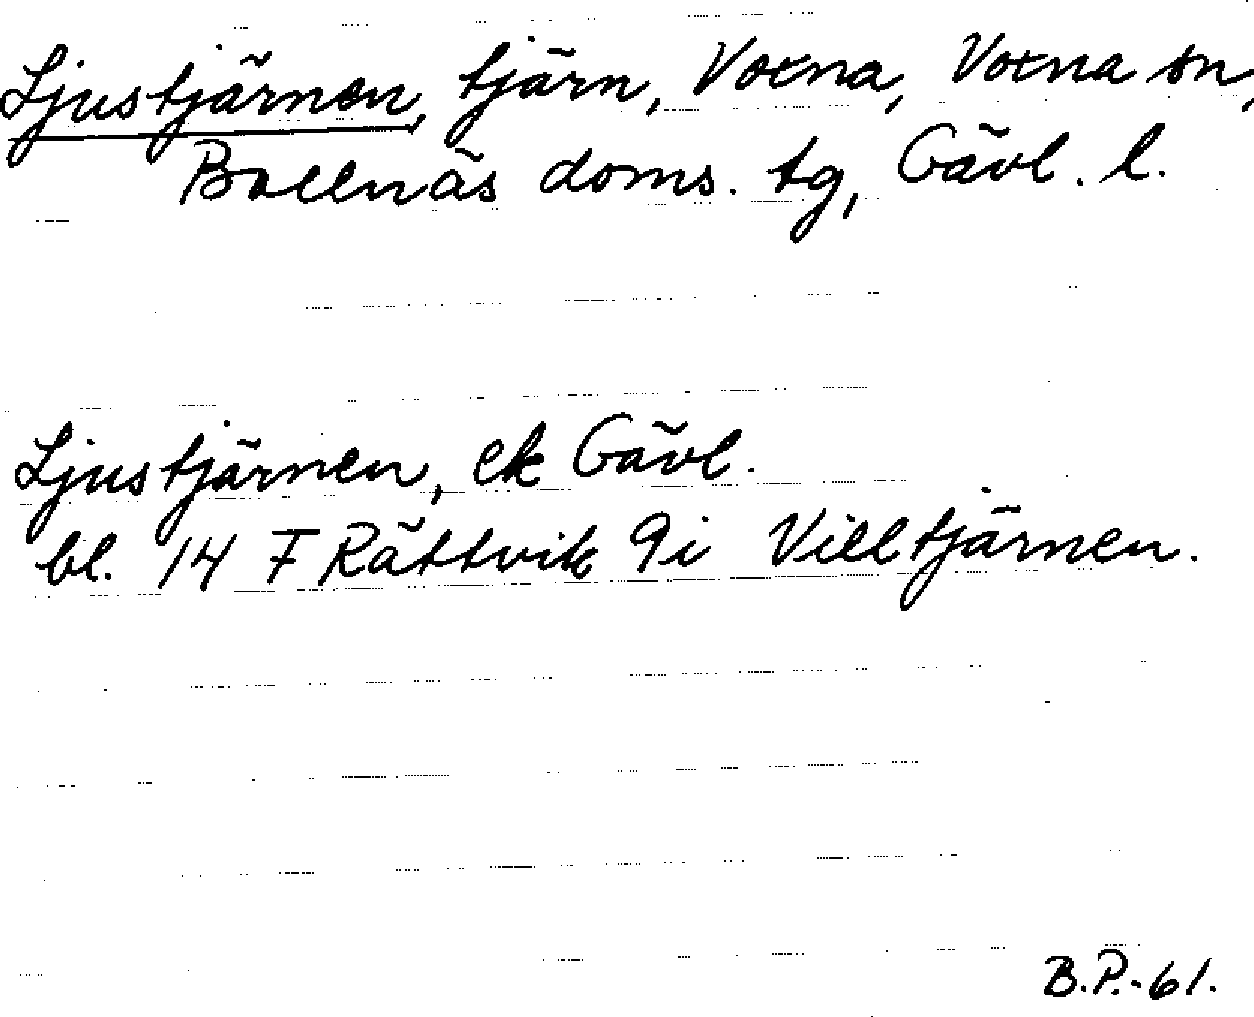 Ljustjärnen, tjärn, Voxna, Voxna sn,
Bollnäs doms. tg, Gävl. l.
Ljustjärnen, ek Gävl.
bl. 14 F Rättvik 9i Villtjärnen.
B.P.-61.